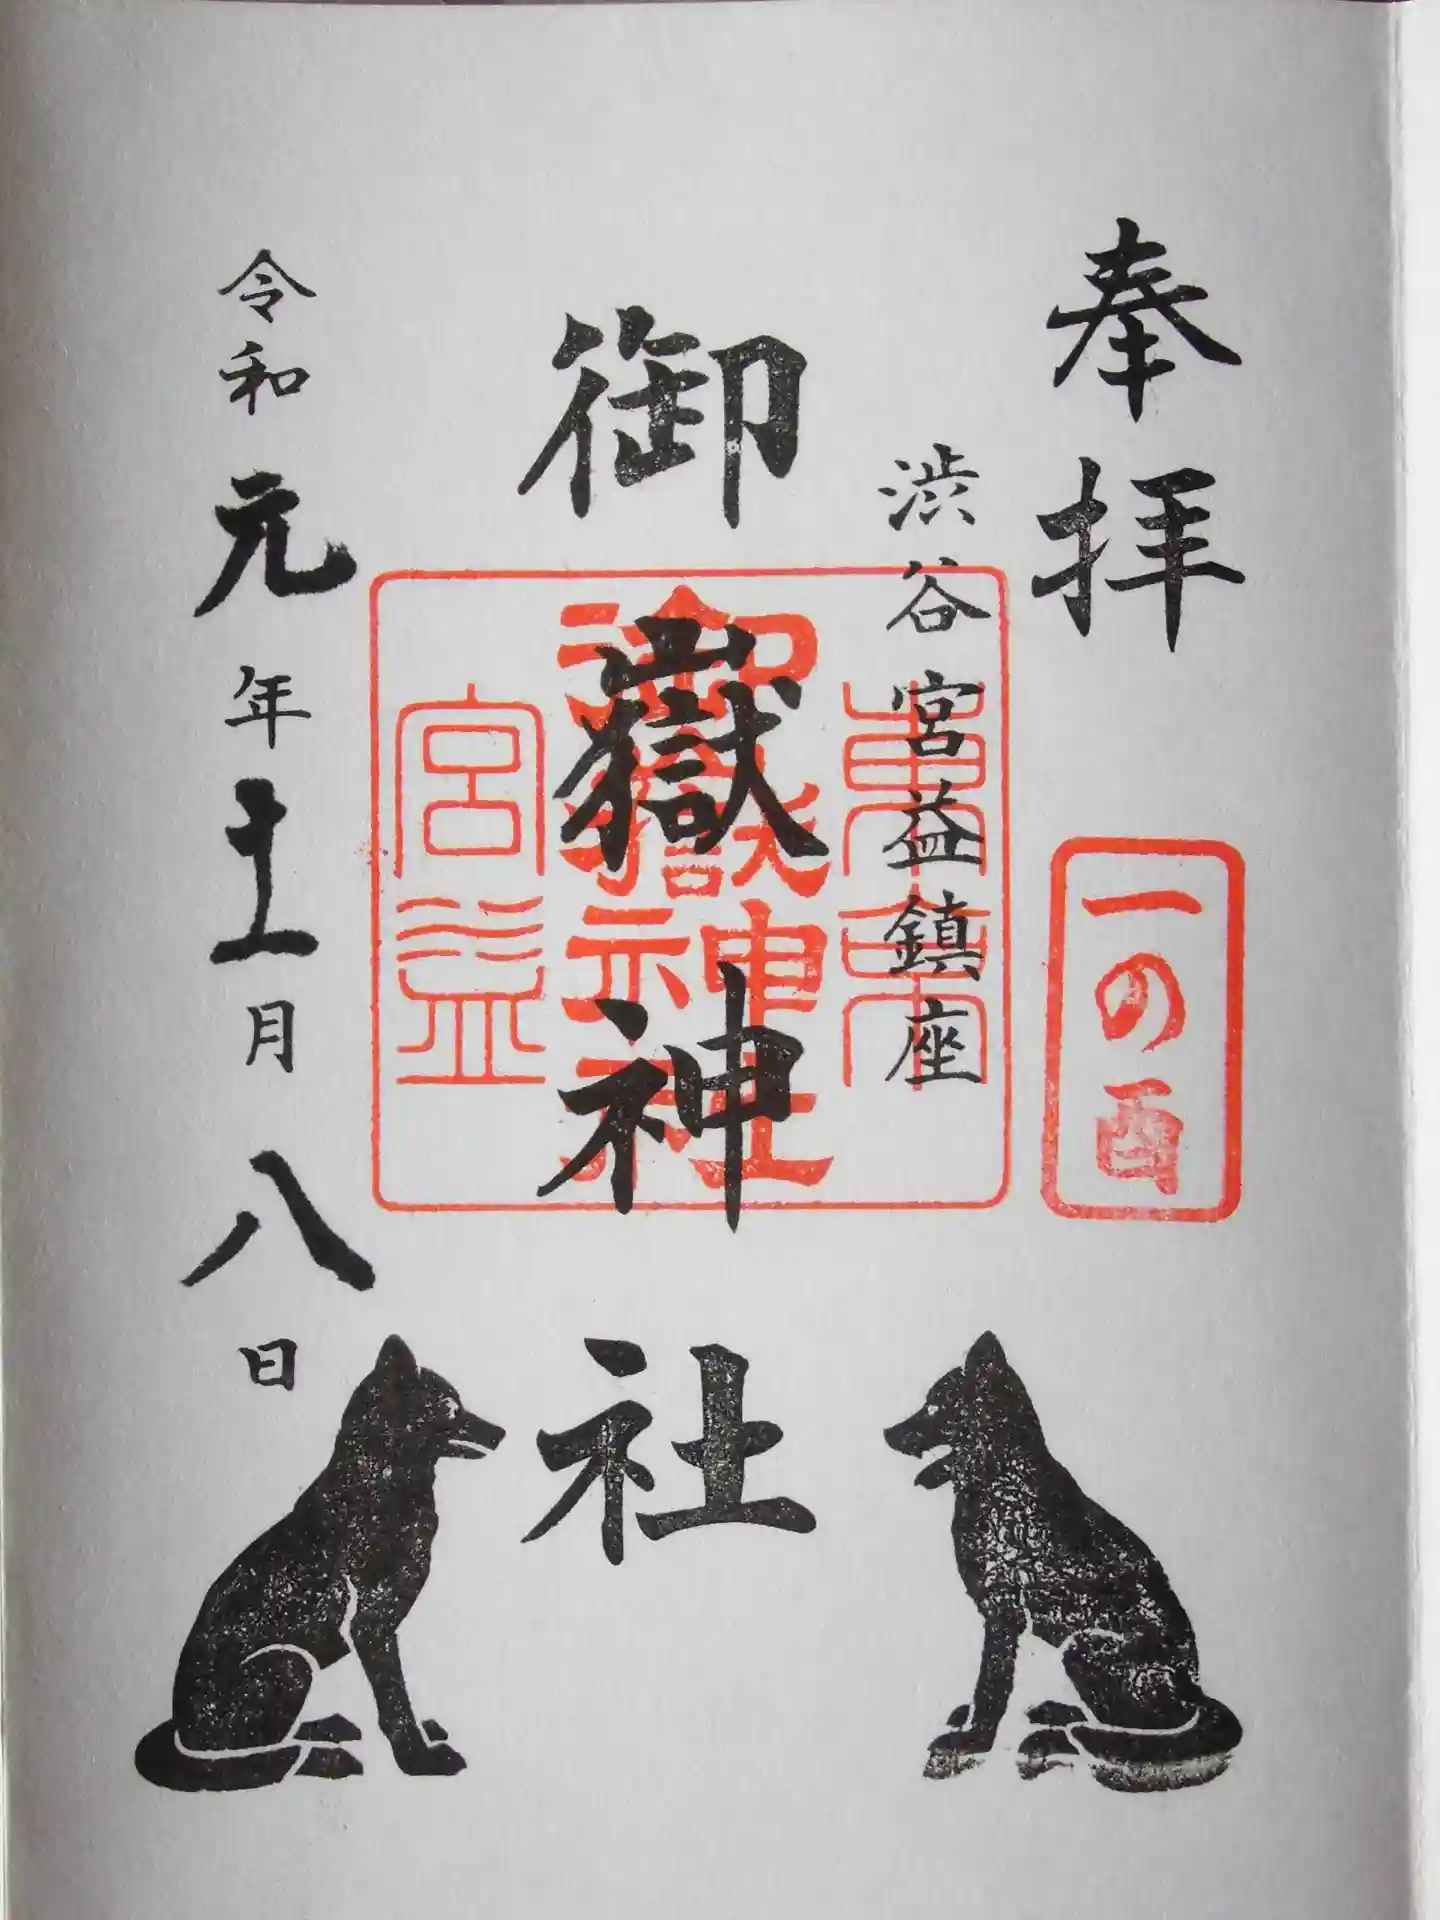 奉拝
一の酉
渋谷宮益鎮座
御嶽神社
東京
御嶽神社
宮益
令和元年十一月八日